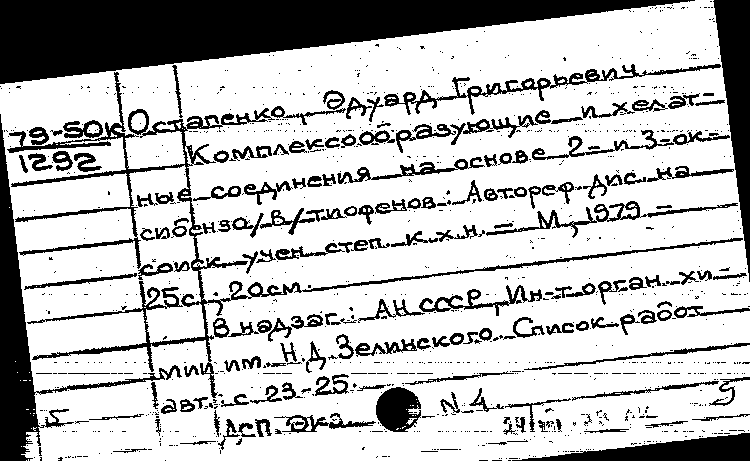 79-50к Остапенко, Эдуард Григорьевич
1292 Комплексообразующие и хелат-
ные соединения на основе 2- и 3-ок-
сибензо/в/тиофенов: Автореф. дис. на
соиск. учен. степ. к.х.н. - М., 1979 -
25с.; 20см.
В надзаг.: АН СССР, Ин-т орган. хи-
мии им. Н.Д. Зелинского. Список работ
авт.: с. 23-25.
5 ДСП. Экз. N 4. 9